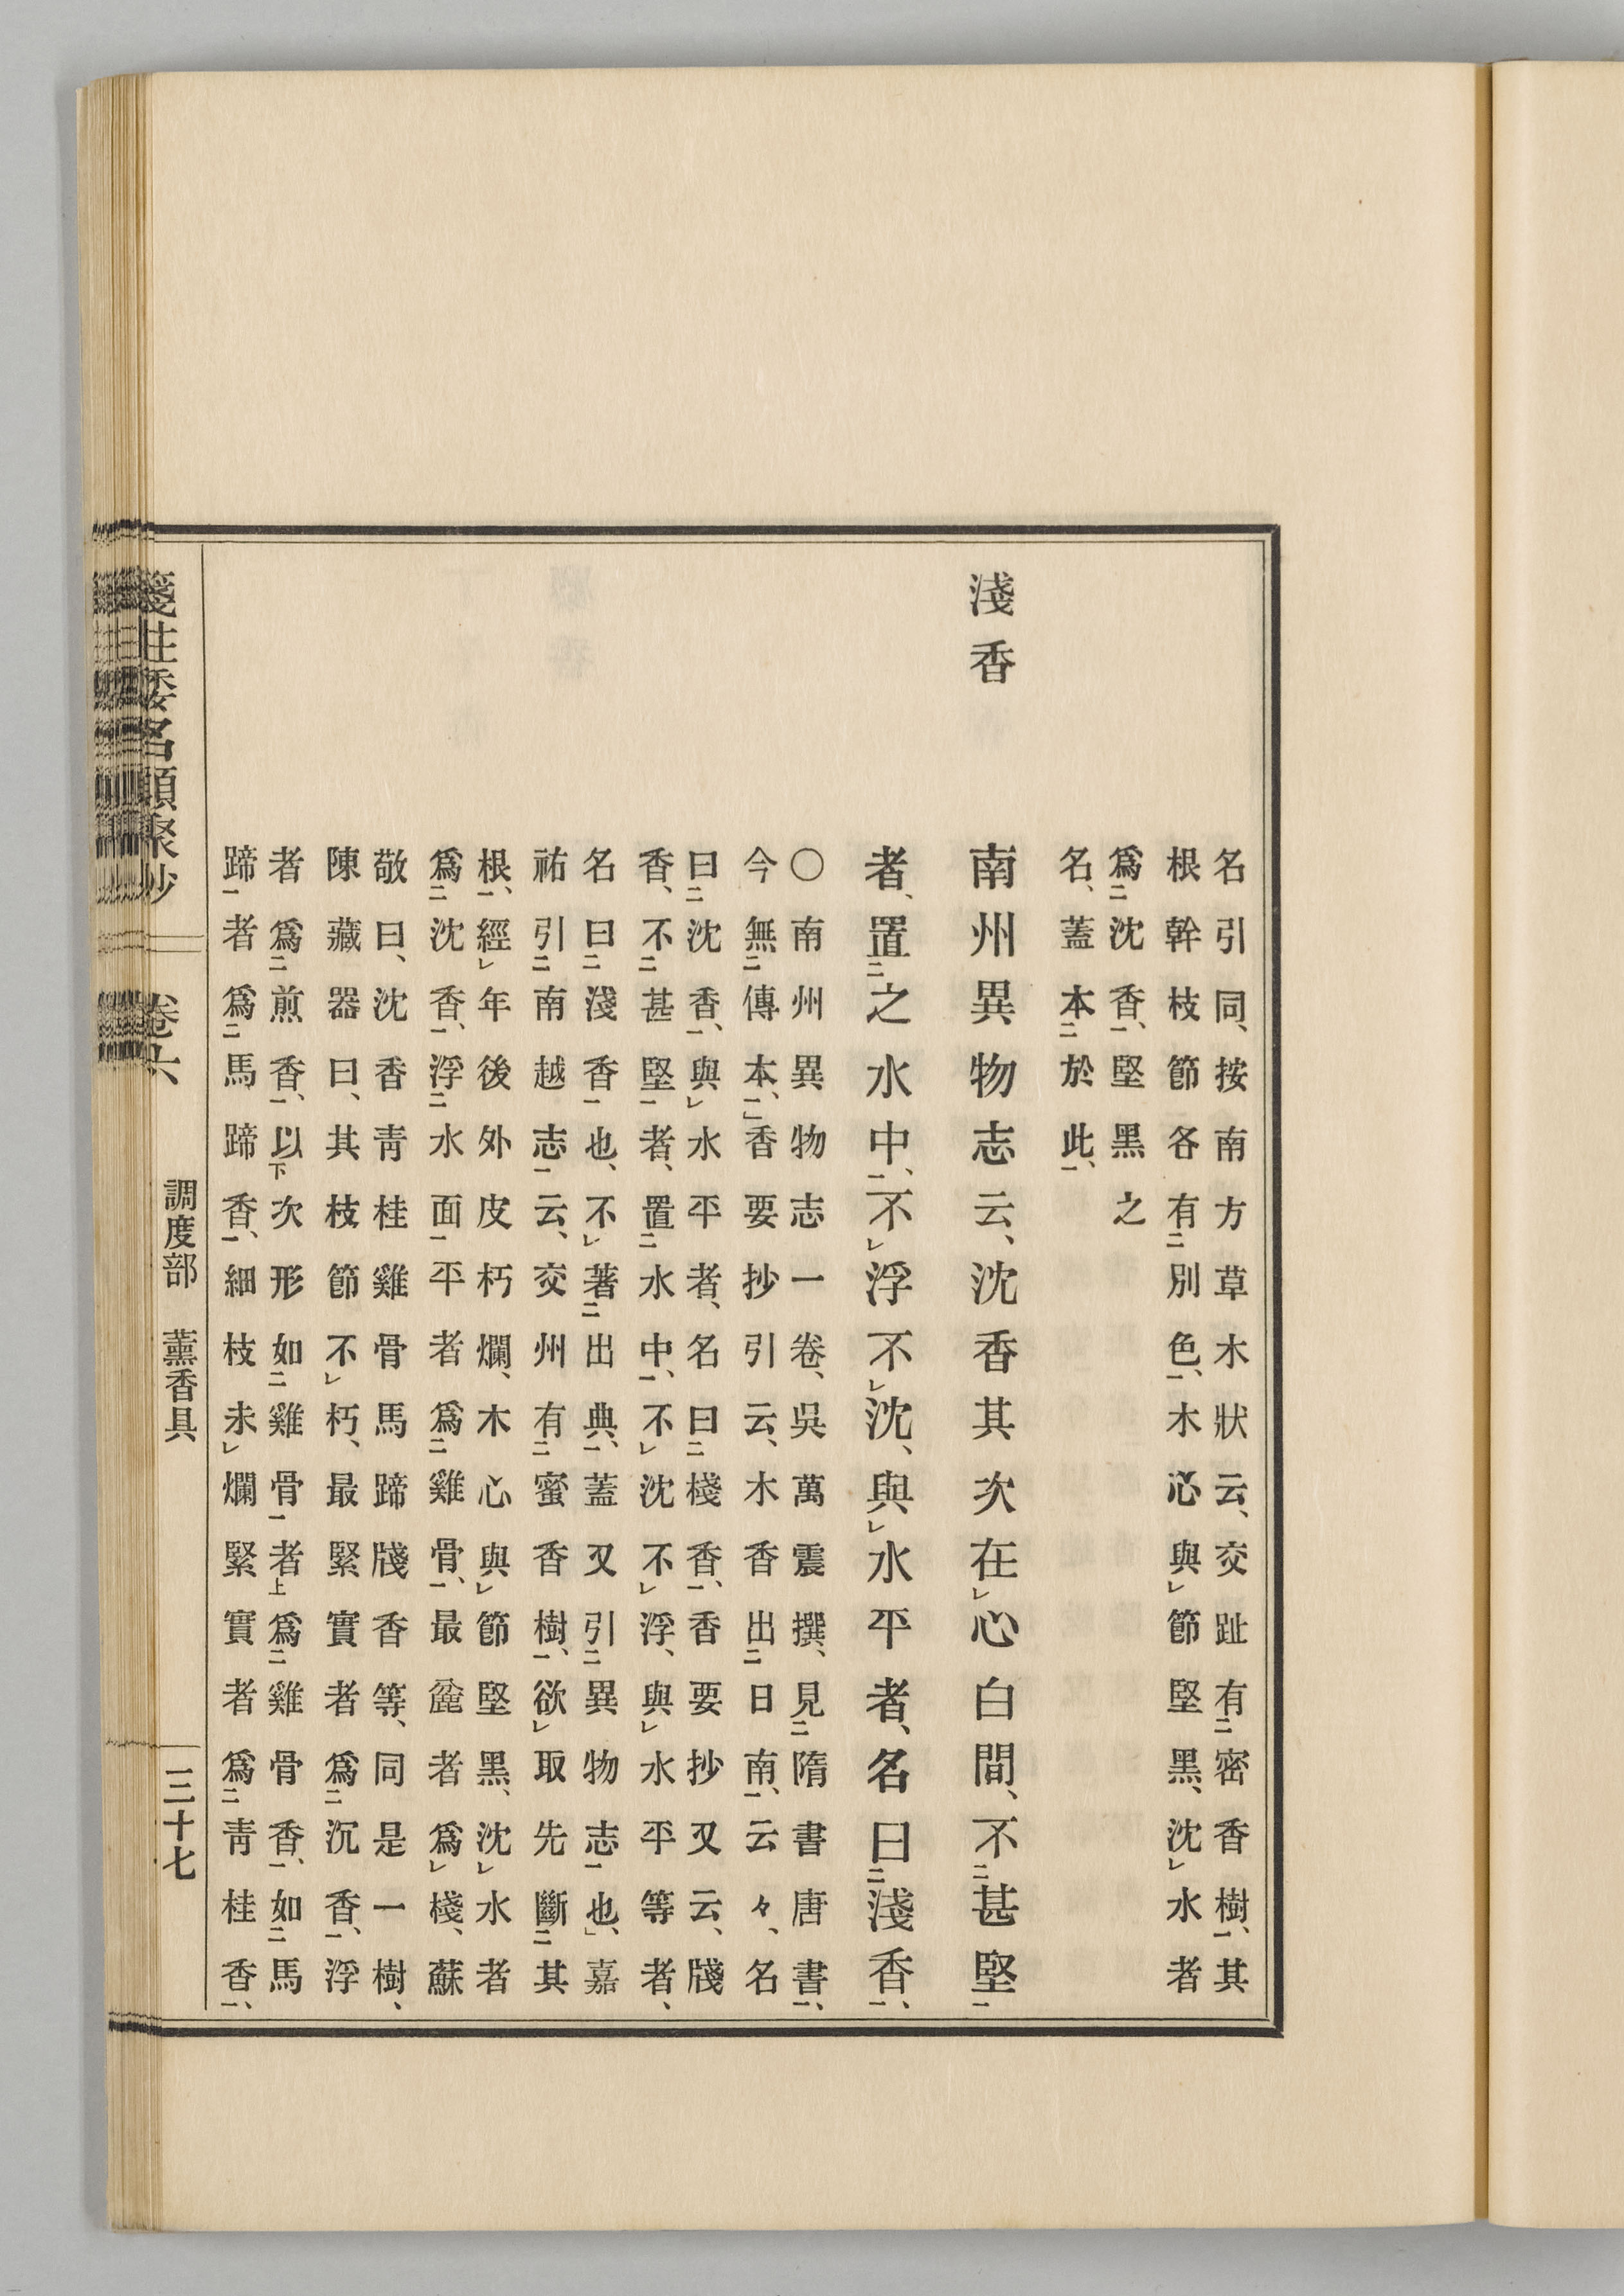 名引同、按南方草木狀云、交趾有㆓密香樹㆒、其
根幹枝節各有㆓別色㆒、木心與㆑節堅黑、沈㆑水者
爲㆓沈香㆒、堅黑之
名、蓋本㆓於此㆒、
淺香
南州異物志云、沈香其次在㆑心白間、不㆓甚堅㆒
者、置㆓之水中㆒、不㆑浮不㆑沈、與㆑水平者、名曰㆓淺香㆒、
○南州異物志一卷、吳萬震撰、見㆓隋書唐書㆒、
今無㆓傳本㆒、」香要抄引云、木香出㆓日南㆒、云々、名
曰㆓沈香㆒、與㆑水平者、名曰㆓棧香㆒、香要抄又云、牋
香、不㆓甚堅㆒者、置㆓水中㆒、不㆑沈不㆑浮、與㆑水平等者、
名曰㆓淺香㆒也、不㆑著㆓出典㆒、蓋又引㆓異物志㆒也、」嘉
祐引㆓南越志㆒云、交州有㆓蜜香樹㆒、欲㆑取先斷㆓其
根㆒、經㆑年後外皮朽爛、木心與㆑節堅黑、沈㆑水者
爲㆓沈香㆒、浮㆓水面㆒平者爲㆓雞骨㆒、最麁者爲㆑棧、蘇
敬曰、沈香青桂雞骨馬蹄牋香等、同是一樹、
陳藏器曰、其枝節不㆑朽、最緊實者爲㆓沉香㆒、浮
者爲㆓煎香㆒、以㆘次形如㆓雞骨㆒者㆖爲㆓雞骨香㆒、如㆓馬
蹄㆒者爲㆓馬蹄香㆒、細枝未㆑爛緊實者爲㆓青桂香㆒、
箋注倭名類聚抄　卷六　調度部　薰香具　三十七